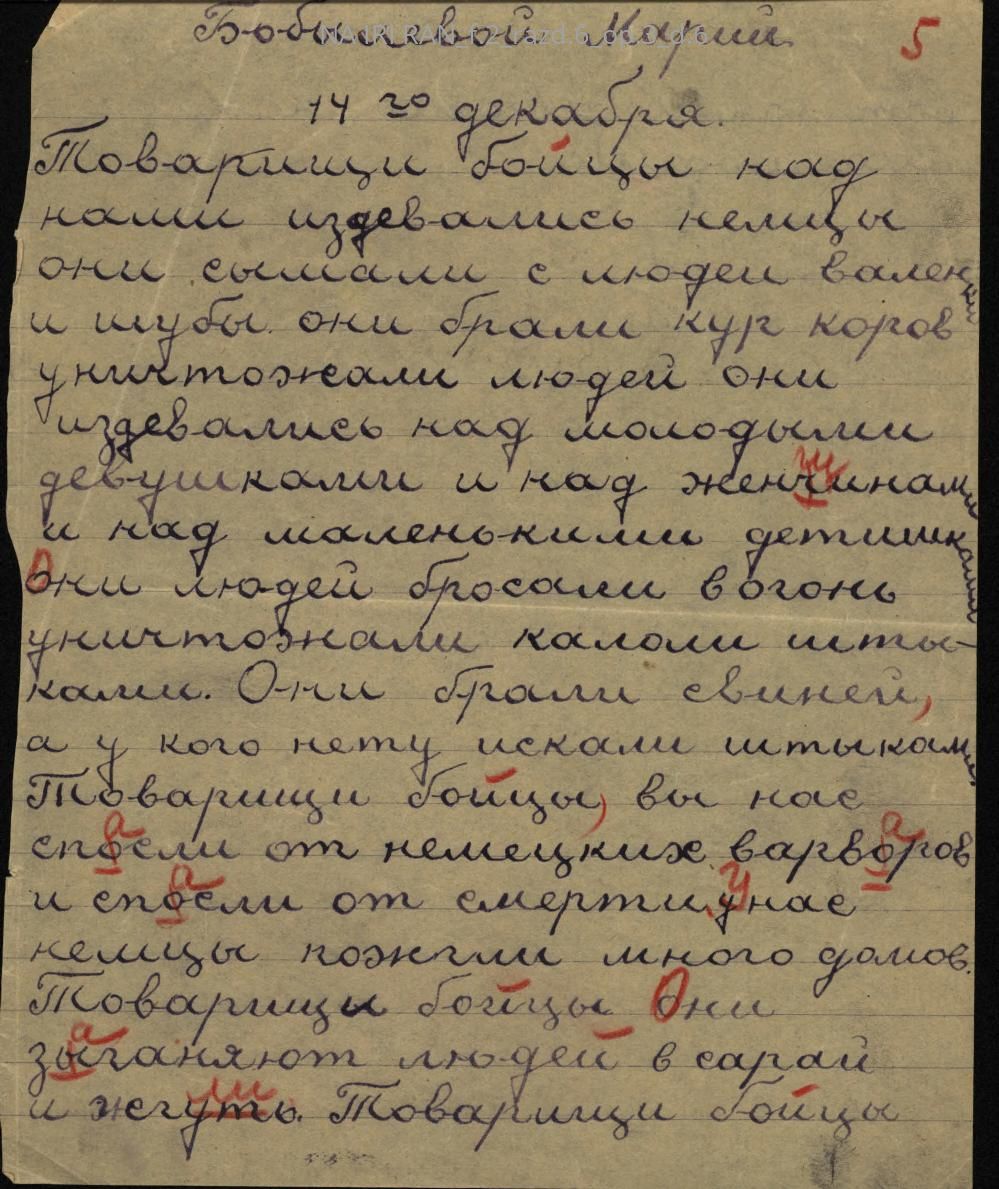 Бобылевой Марии
5
14 го декабря.
Товарищи бойцы над
нами издевались немцы
они сымали с людей вален
ки
и шубы. они брали кур коров
уничтожали людей они
издевались над молодыми
девушками и над женчинами
щ
и над маленькими детишками
Они людей бросали в огонь
уничтожали калоли шты-
ками. Они брали свиней,
а у кого нету искали штыками
Товарищи бойцы, вы нас
спосли от немецких варворов
а а
и спосли от смерти, у нас
а У
немцы пожгли много домов.
Товарищи бойцы Они
зыганяют людей в сарай
а
и жгуть. Товарищи бойцы
ли